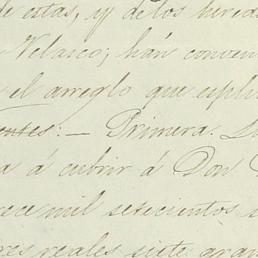 de estas, y de los hered
Velasco; han conven
el arreglo que esplic
entes; — Primera. La
a á cubrir á Don
rece mil setecientos
res reales siete gran